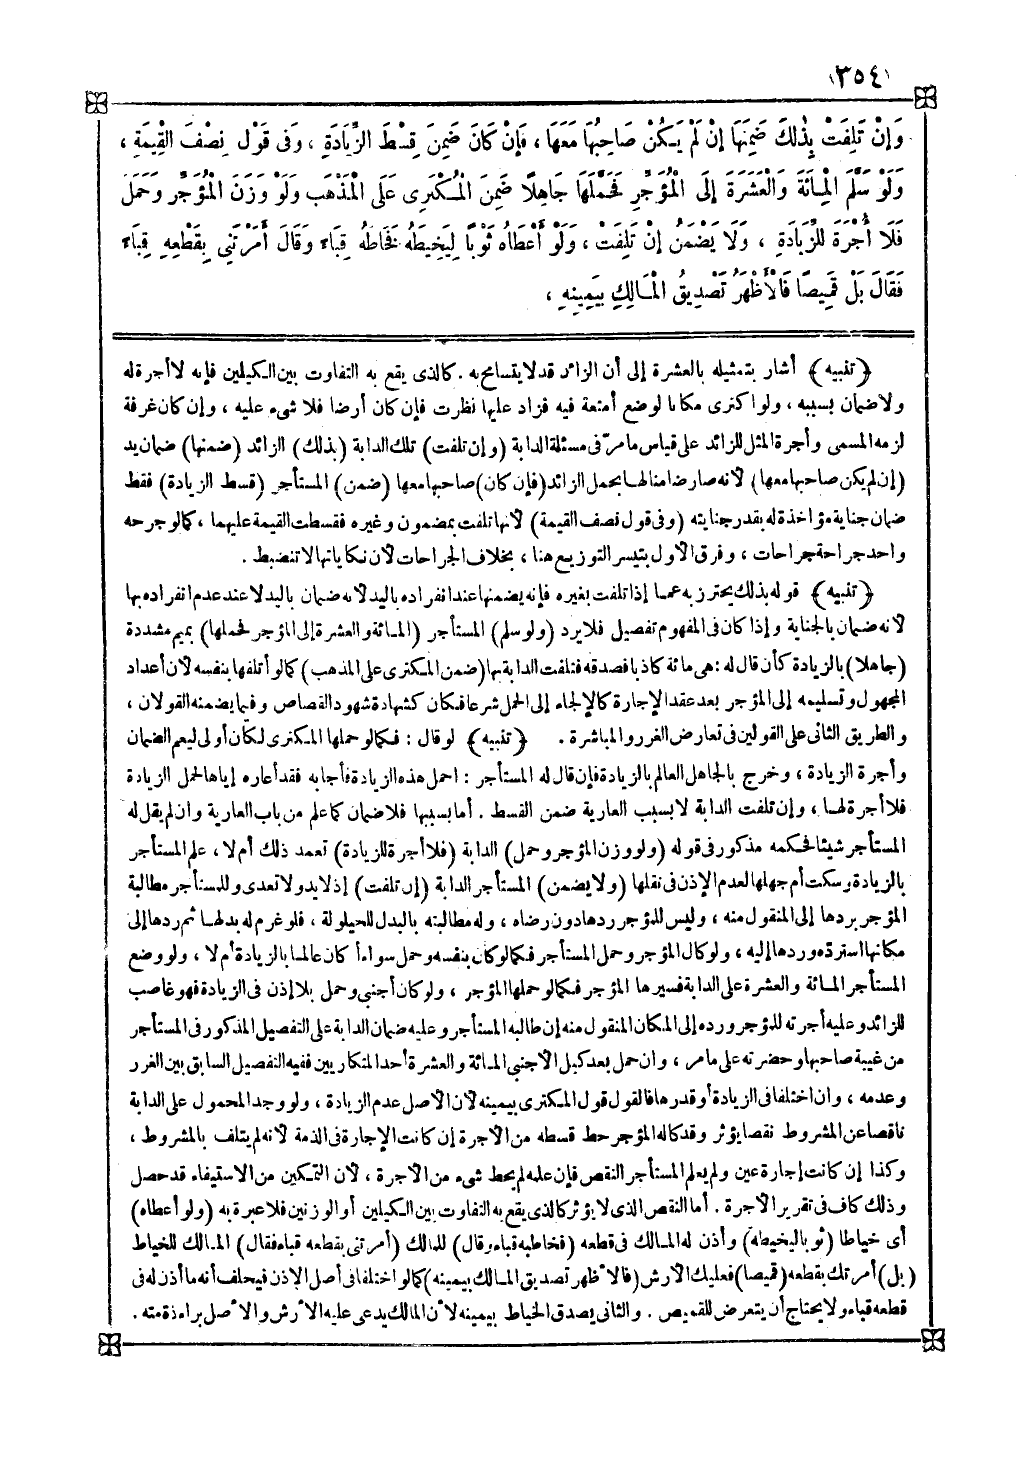 (٣٥٤)
وَإِنْ تَلِفَتْ بِذٰلِكَ ضَمِنَهَا إِنْ لَمْ يَكُنْ صَاحِبُهَا مَعَهَا ، فَإِنْ كَانَ ضَمِنَ قِسْطَ الزِّيَادَةِ ، وَفِى قَوْلٍ نِصْفَ الْقِيمَةِ ،
وَلَوْ سَلَّمَ الْمِائَةَ وَالْعَشَرَةَ إِلَى الْمُؤَجِّرِ فَحَمَّلَهَا جَاهِلًا ضَمِنَ الْمُكْتَرِى عَلَى الْمَذْهَبِ وَلَوْ وَزَنَ الْمُؤَجِّرُ وَحَمَلَ
فَلَا أُجْرَةَ لِلزِّيَادَةِ ، وَلَا يَضْمَنُ إِنْ تَلِفَتْ ، وَلَوْ أَعْطَاهُ ثَوْبًا لِيَخِيطَهُ فَخَاطَهُ قِبَاءً وَقَالَ أَمَرْتَنِى بِقَطْعِهِ قِبَاءً
فَقَالَ بَلْ قَمِيصًا فَالْأَظْهَرُ تَصْدِيقُ الْمَالِكِ بِيَمِينِهِ ،
﴿تنبيه﴾ أشار بتمثيله بالعشرة إلى أن الزائد قد لا يتسامح به . كالذى يقع به التفاوت بين الكيلين فإنه لا أجرة له
ولا ضمان بسببه ، ولو اكترى مكانا لوضع أمتعة فيه فزاد عليها نظرت فإن كان أرضا فلا شىء عليه ، وإن كان غرفة
لزمه المسمى وأجرة المثل للزائد على قياس ما مرّ فى مسئلة الدابة (وإن تلفت) تلك الدابة (بذلك) الزائد (ضمنها) ضمان يد
(إن لم يكن صاحبها معها) لأنه صار ضامنا لها بحمل الزائد (فإن كان) صاحبها معها (ضمن) المستأجر (قسط الزيادة) فقط
ضمان جناية مؤاخذة له بقدر جنايته (وفى قول نصف القيمة) لأنها تلفت بمضمون وغيره فقسطت القيمة عليهما ، كما لو جرحه
واحد جراحة جراحات ، وفرق الأول بتيسر التوزيع هنا ، بخلاف الجراحات لأن نكاياتها لا تنضبط .
﴿تنبيه﴾ قوله بذلك يحترز به عما إذا تلفت بغيره فإنه يضمنها عند انفراده باليد لأنه ضمان باليد لا عند عدم انفراده بها
لأنه ضمان بالجناية وإذا كان فى المفهوم تفصيل فلا يرد (ولو سلم) المستأجر (المائة والعشرة إلى المؤجر فحملها) بميم مشددة
(جاهلا) بالزيادة كأن قال له : هى مائة كاذبا فصدقه فتلفت الدابة بها (ضمن المكترى على المذهب) كما لو أتلفها بنفسه لأن أعداد
المجهول وتسليمه إلى المؤجر بعد عقد الإجارة كالإلجاء إلى الحمل شرعا فكان كشهادة شهود القصاص وفيما يضمنه القولان ،
والطريق الثانى على القولين فى تعارض الغرر والمباشرة . ﴿تنبيه﴾ لو قال : فكما لو حملها المكترى لكان أولى ليعم الضمان
وأجرة الزيادة ، وخرج بالجاهل العالم بالزيادة فإن قال له المستأجر : احمل هذه الزيادة فأجابه فقد أعاره إياها لحمل الزيادة
فلا أجرة لها ، وإن تلفت الدابة لا بسبب العارية ضمن القسط . أما بسببها فلا ضمان كما علم من باب العارية وان لم يقل له
المستأجر شيئا فحكمه مذكور فى قوله (ولو وزن المؤجر وحمل) الدابة (فلا أجرة للزيادة) تعمد ذلك أم لا ، علم المستأجر
بالزيادة وسكت أم جهلها لعدم الإذن فى نقلها (ولا يضمن) المستأجر الدابة (إن تلفت) إذ لا يد ولا تعدى وللمستأجر مطالبة
المؤجر بردها إلى المنقول منه ، وليس للمؤجر ردها دون رضاه ، وله مطالبته بالبدل للحيلولة ، فلو غرم له بدلها ثم ردها إلى
مكانها استرده وردها إليه ، ولو كال المؤجر وحمل المستأجر فكما لو كان بنفسه وحمل سواء أ كان عالما بالزيادة أم لا ، ولو وضع
المستأجر المائة والعشرة على الدابة فسيرها المؤجر فكما لو حملها المؤجر ، ولو كان أجنبى وحمل بلا إذن فى الزيادة فهو غاصب
للزائد وعليه أجرته للمؤجر ورده إلى المكان المنقول منه إن طالبه المستأجر وعليه ضمان الدابة على التفصيل المذكور فى المستأجر
من غيبة صاحبها وحضرته على ما مر ، وان حمل بعد كيل الأجنبى المائة والعشرة أحد المتكاريين ففيه التفصيل السابق بين الغرر
وعدمه ، وان اختلفا فى الزيادة أو قدرها فالقول قول المكترى بيمينه لأن الأصل عدم الزيادة ، ولو وجد المحمول على الدابة
ناقصا عن المشروط نقصا يؤثر وقد كاله المؤجر حط قسطه من الأجرة إن كانت الإجارة فى الذمة لأنه لم يتلف بالمشروط ،
وكذا إن كانت إجارة عين ولم يعلم المستأجر النقص فإن علمه لم يحط شىء من الأجرة ، لأن التمكين من الاستيفاء قد حصل
وذلك كاف فى تقرير الأجرة . أما النقص الذى لا يؤثر كالذى يقع به التفاوت بين الكيلين أو الوزنين فلا عبرة به (ولو أعطاه)
أى خياطا (ثوبا ليخيطه) وأذن له المالك فى قطعه (فخاطبه قباء وقال) للمالك (أمرتنى بقطعه قباء فقال) المالك للخياط
(بل) أمرتك بقطعه (قميصا) فعليك الأرش (فالأظهر تصديق المالك بيمينه) كما لو اختلفا فى أصل الإذن فيحلف أنه ما أذن له فى
قطعه قباء ولا يحتاج أن يتعرض للقميص . والثانى يصدق الخياط بيمينه لأن المالك يدعى عليه الأرش والأصل براءة ذمته .